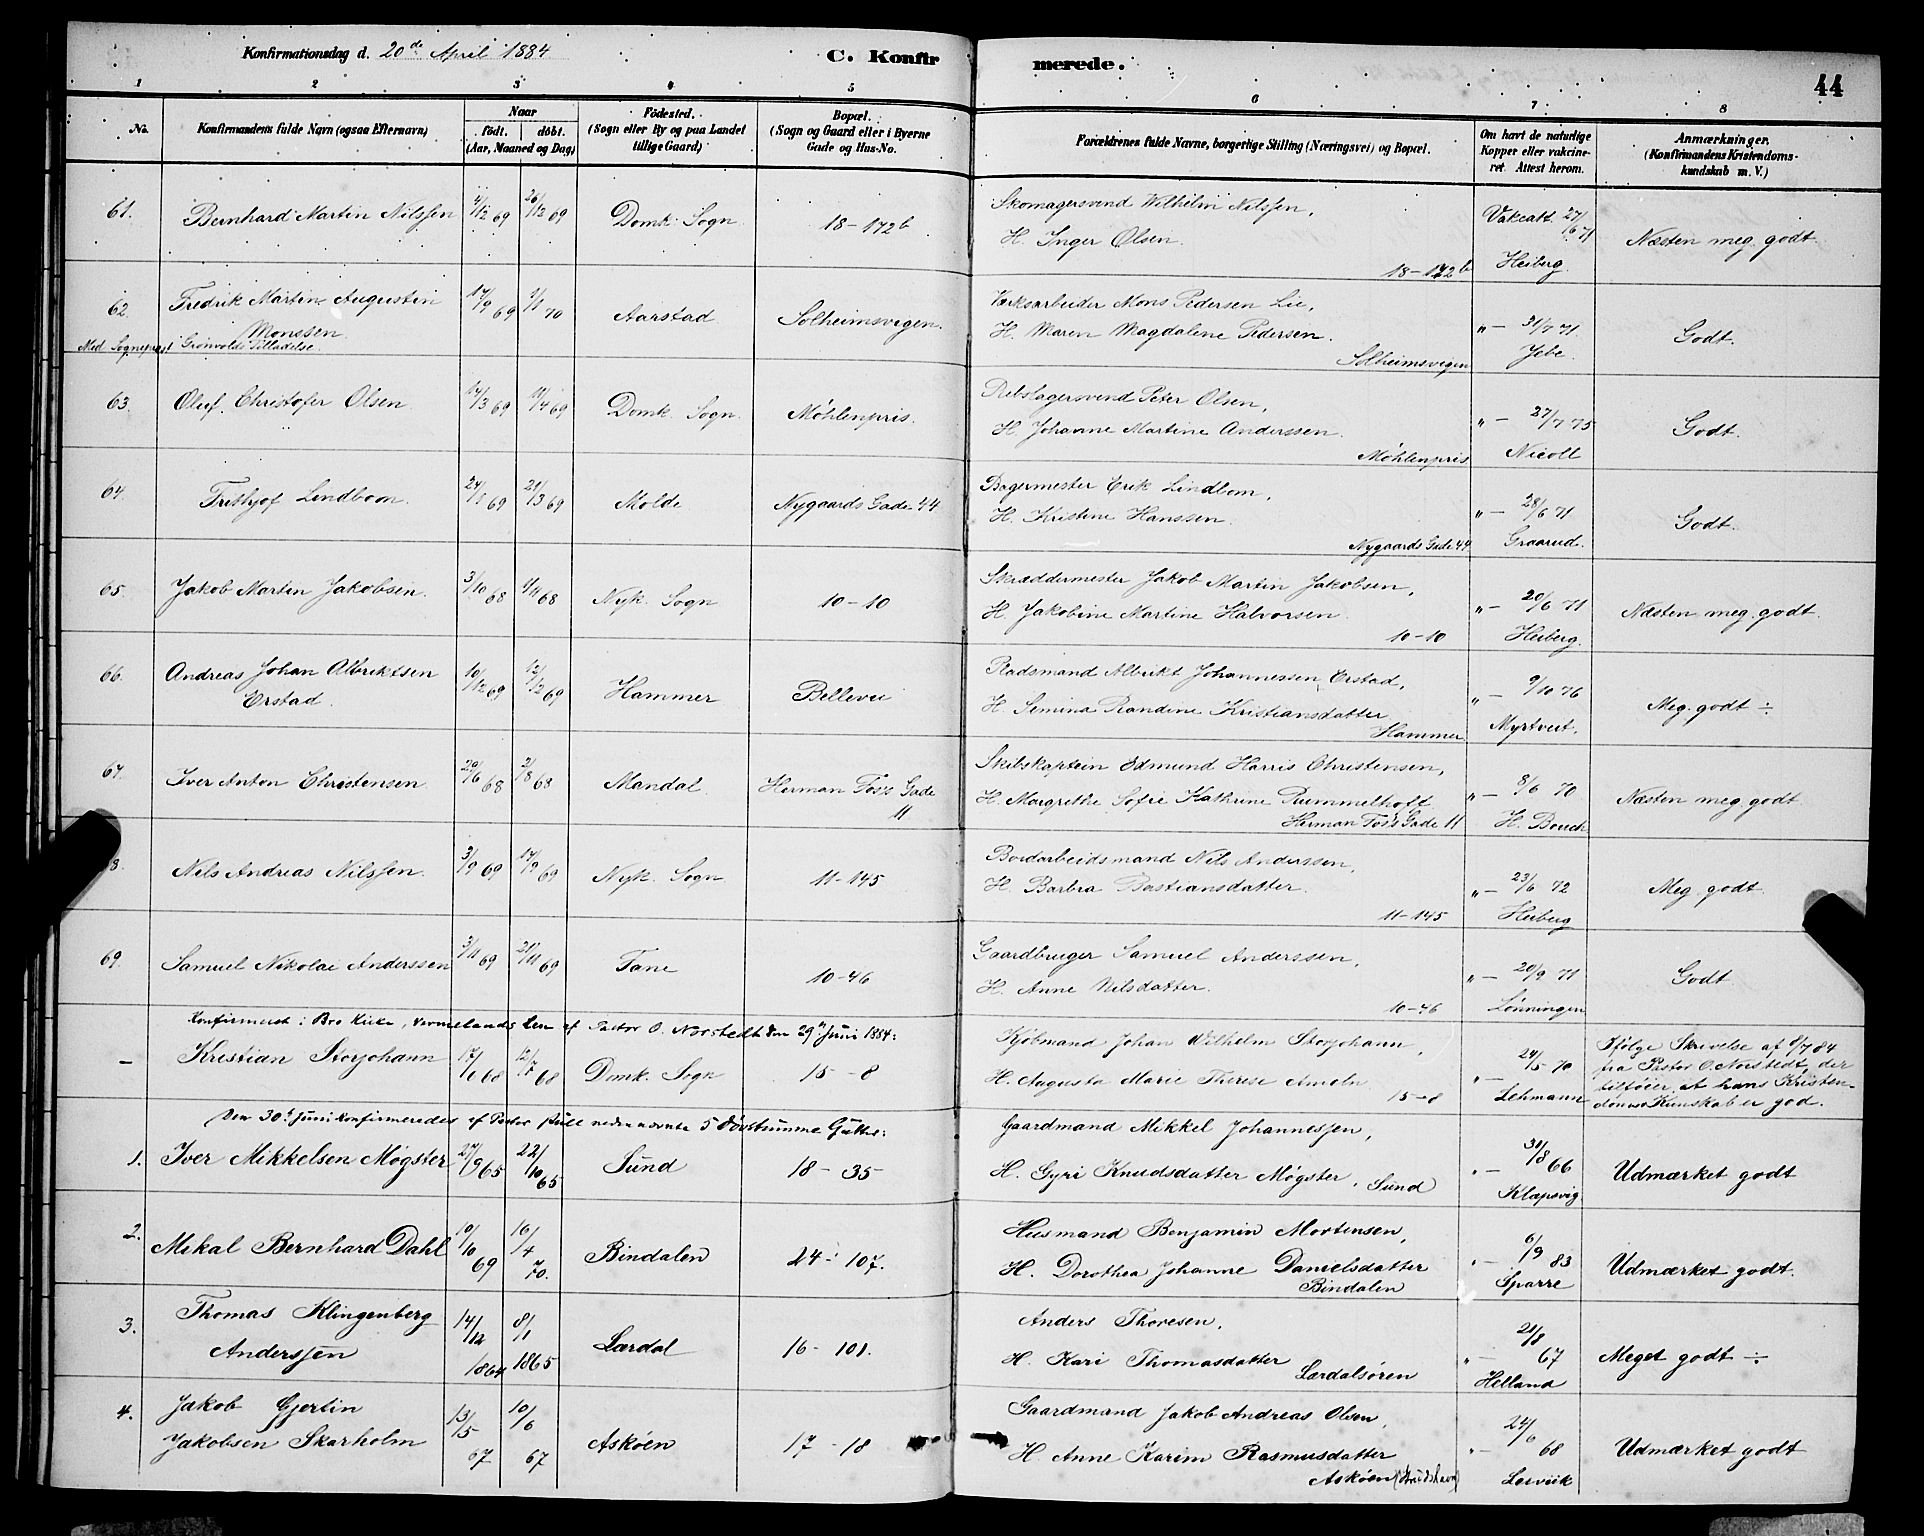 Konfirmationsdag d. 20de April 1884
C. Konfirmerede.
44
1 2 3 4 5 6 7 8
No. Konfirmandens fulde Navn (ogsaa Efternavn) Naar født. døbt. (Aar, Maaned og Dag) Fødested. (Sogn eller By og paa Landet tillige Gaard) Bopæl. (Sogn og Gaard eller i Byerne Gade og Hus-No. Forældrenes fulde Navne, borgerlige Stilling (Næringsvei) og Bopæl. Om havt de naturlige Kopper eller vakcineret. Attest herom. Anmærkninger. (Konfirmandens Kristendomskundskab m. V.)
61. Bernhard Martin Nilssen 4/12 69 26/12 69 Domk. Sogn 18-172b Skomagersvend Wilhelm Nilssen, Vakcatt. 27/6 71 Næsten meg. godt
H. Inger Olsen.
18-172b Heiberg.
62. Fredrik Martin Augustin 17/9 69 1/1 70 Aarstad Solheimsvigen. Værksarbeider Mons Pedersen Lie, " - 31/7 71 Godt.
Monssen. H. Maren Magdalene Pedersen.
Med Sogneprest Grønvolds Tilladelse. Solheimsvigen Jebe.
63. Oluf Christofer Olsen. 17/3 69 11/4 69 Domk. Sogn. Møhlenpris. Rebslagersvend Peter Olsen, " - 27/7 75 Godt.
H. Johanne Martine Anderssen.
Møhlenpris Nicoll
64. Frithjof Lindbom. 24/1 69 21/3 69 Molde Nygaards Gade 44 Bagermester Erik Lindbom, " - 28/6 71 Godt.
H. Kristine Hanssen.
Nygaards Gade 44 Graarud.
65. Jakob Martin Jakobsen. 3/10 68 1/11 68 Nyk. Sogn 10-10 Skræddermester Jakob Martin Jakobsen, " - 20/6 71 Næsten meg. godt.
H. Jakobine Martine Halvorsen.
10-10 Heiberg.
66. Andreas Johan Albriktsen 10/12 69 12/12 69 Hammer Bellevue Pladsmand Albrikt Johannessen Erstad, " - 9/10 76 Meg. godt ÷
Erstad. H. Semina Randine Kristiansdatter
Hammer Myrtveit.
67. Iver Anton Christensen 29/6 68 2/8 68 Mandal. Herman Foss Gade 11 Skibskaptein Edmund Harris Christensen, " - 8/6 70 Næsten meg godt.
H. Margrethe Sofie Kathrine Rummelhoff
Herman Foss Gade 11 H. Bouch
8. Nels Andreas Nilssen. 3/9 69 17/9 69 Nyk. Sogn 11-145 Bordarbeidsmand Nils Anderssen, " - 23/6 72 Meg godt
H. Barbra Bastiansdatter.
11-145 Heiberg
69. Samuel Nikolai Anderssen 3/11 69 21/11 69 Fane 10-46 Gaardbruger Samuel Anderssen, " - 20/9 71 Godt
H. Anne Nilsdatter.
10-46 Lønningen
Konfirmeret i Bro Kirke, Vermelands Len af Pastor O. Norstedt den 29de Juni 1884:
- Kristian Storjohann 17/6 68 12/7 68 Domk. Sogn 15-8 Kjøbmand Johan Wilhelm Storjohann, " - 24/5 70 Ifølge Skrivelse af 8/7 84
H. Augusta Marie Therese Ameln fra Pastor O. Norstedt, der
15-8 Lehmann tilføier, at hans Kristen-
doms Kunskab er god.
Den 30te Juni konfirmeredes af Pastor Külle nedennævnte 5 døvstumme Gutter:
1. Iver Mikkelsen Møgster 27/9 65 22/10 65 Sund 18-35 Gaardmand Mikkel Johannessen, " - 31/8 66 Udmærket godt
H. Gyri Knudsdatter Møgster, Sund Klæpsvig
2. Mikal Bernhard Dahl 10/10 69 16/4 70. Bindalen 24-107. Husmand Benjamin Mortensen, " - 6/9 83 Udmærket godt.
H. Dorothea Johanne Danielsdatter
Bindalen Sparre
3. Thomas Klingenberg 14/12 1864 8/1 1865 Lærdal 16-101. Anders Thoresen, " - 21/8 67 Meget godt ÷
Anderssen H. Kari Thomasdatter
Lærdalsøren Helland
4. Jakob Gjertin 13/5 67 10/6 67 Askøen 17-18 Gaardmand Jakob Andreas Olsen, " - 24/6 68 Udmærket godt
Jakobsen Skarholm H. Anne Karim Rasmusdatter
Askøen (Strudshavn) Leivik